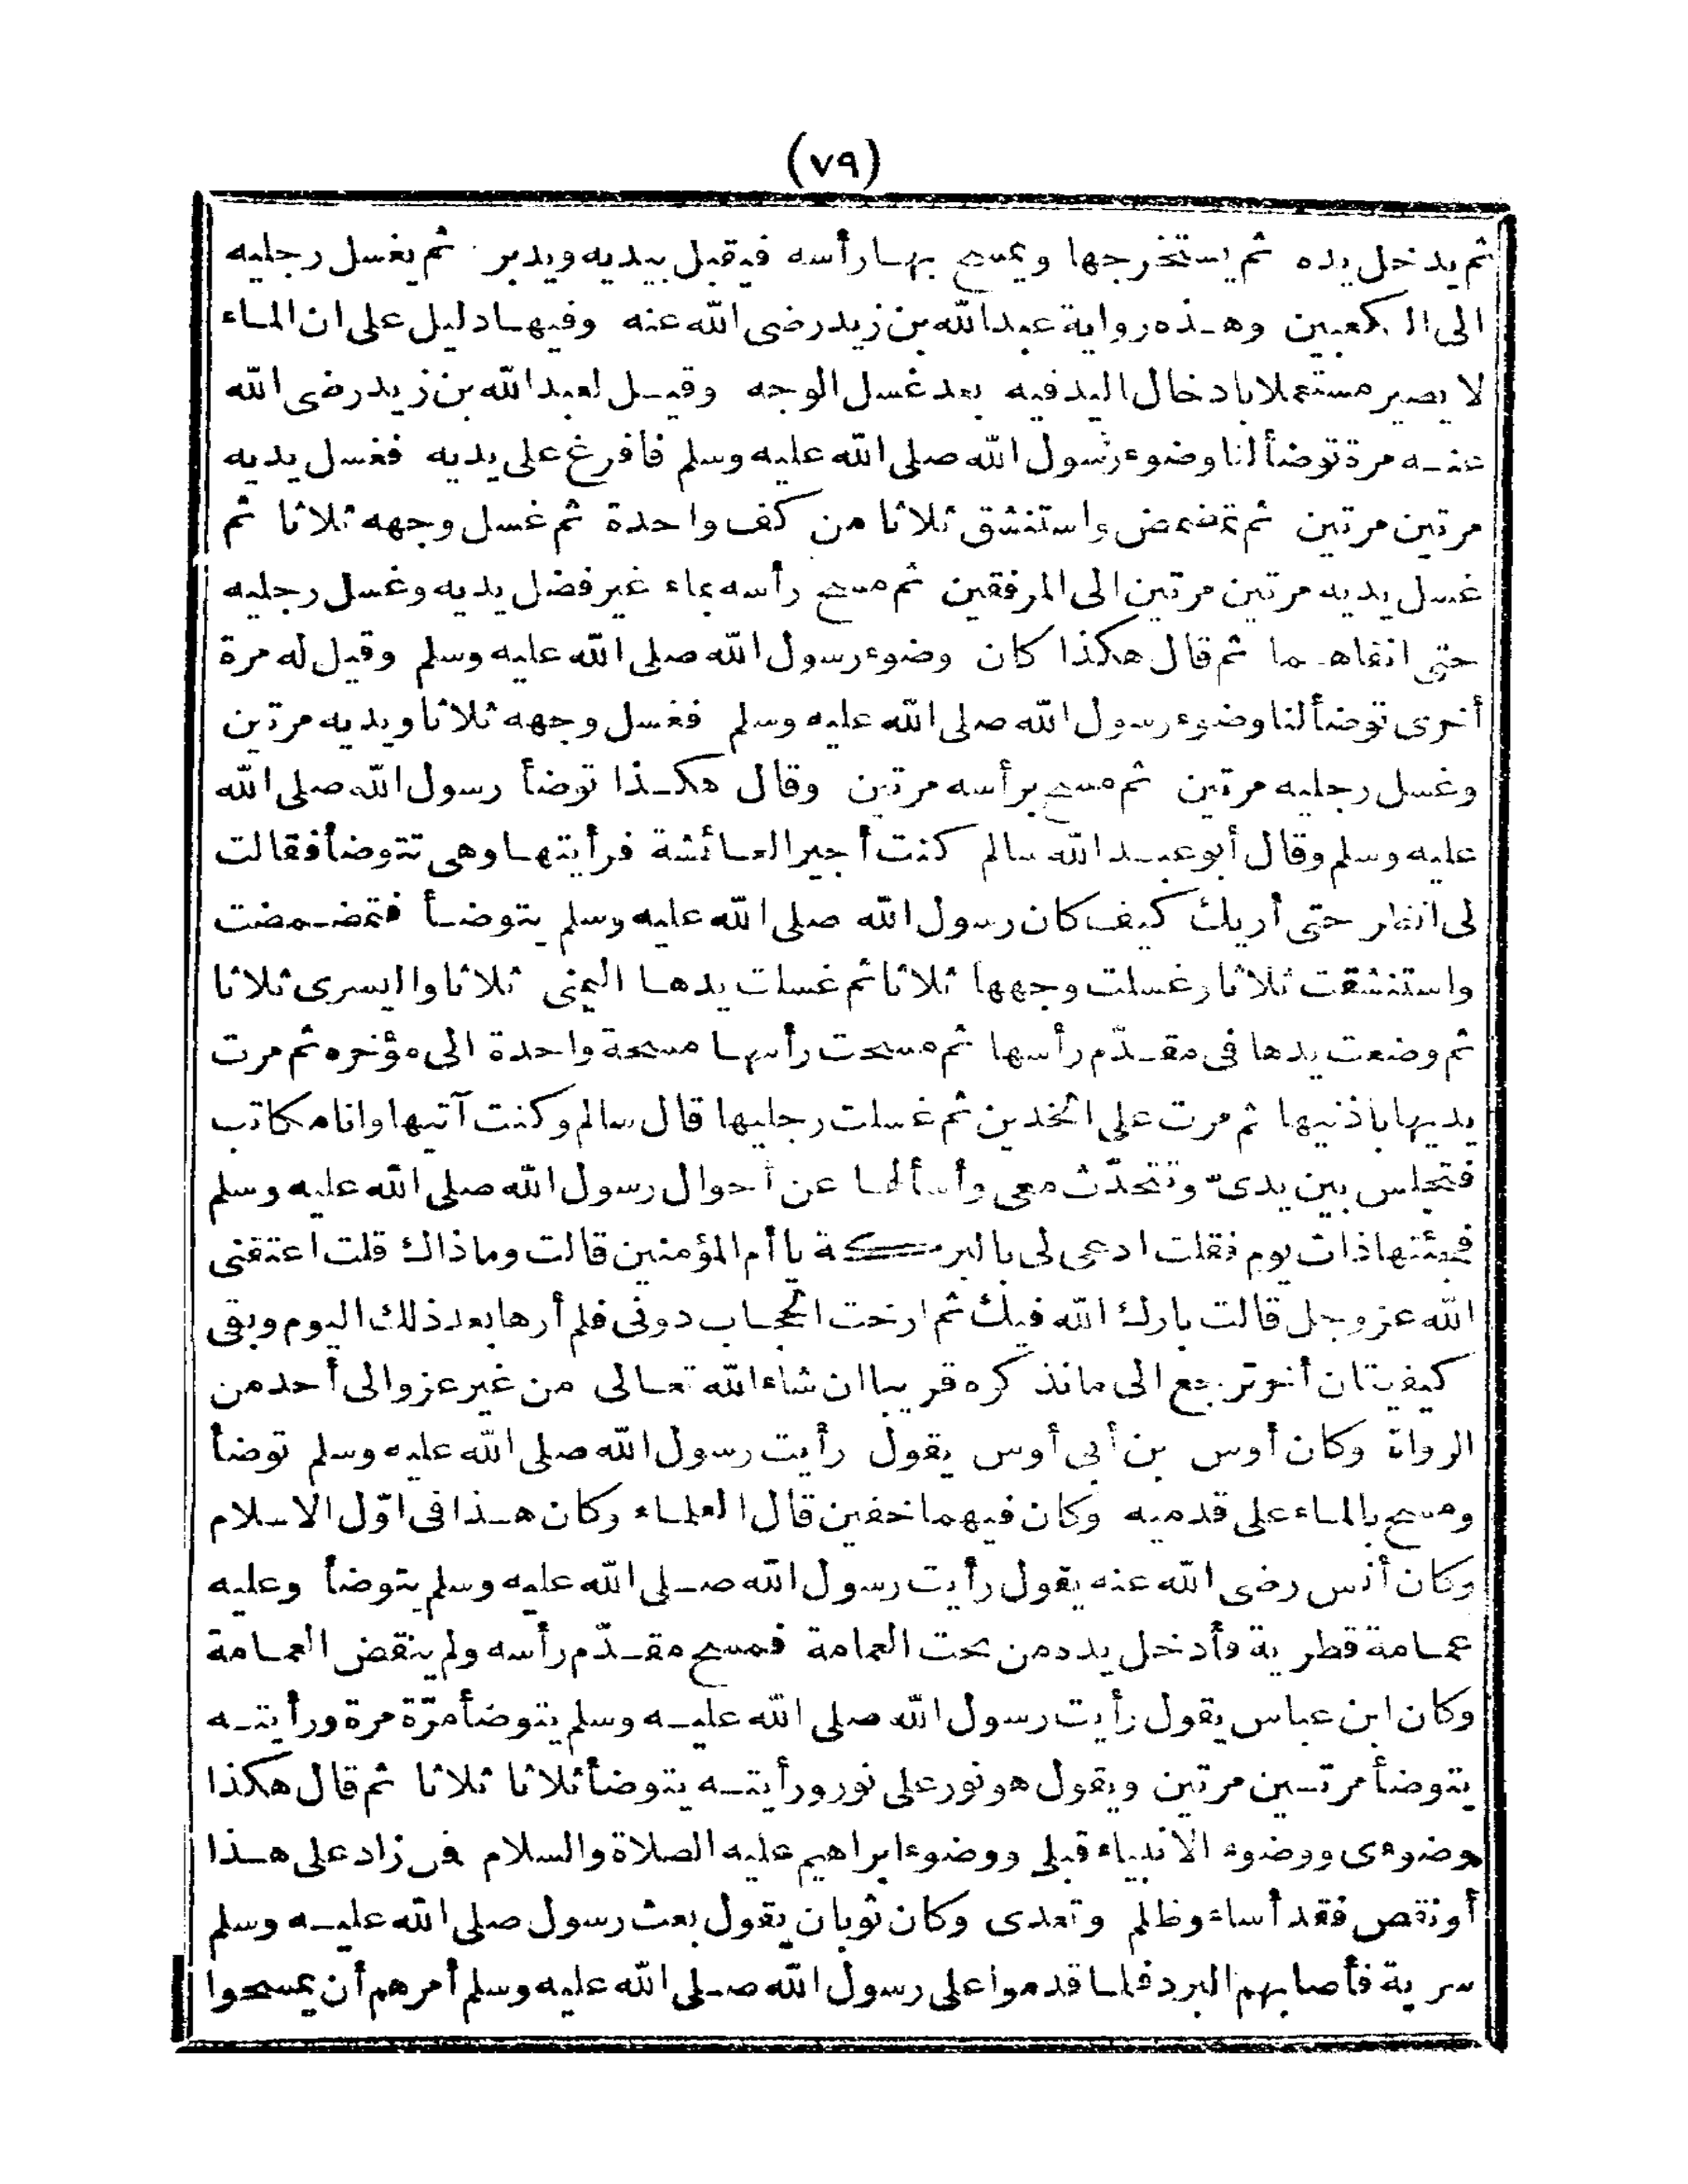 (٧٩)
ثم يدخل يده ثم يستخرجها ويمسح بها رأسه فيقبل بيديه ويدبر ثم يغسل رجليه
الى الكعبين وهذه رواية عبد الله بن زيد رضى الله عنه وفيها دليل على ان الماء
لا يصير مستعملا بادخال اليد فيه بعد غسل الوجه وقيل لعبد الله بن زيد رضى الله
عنه مرة توضأ لنا وضوء رسول الله صلى الله عليه وسلم فأفرغ على يديه فغسل يديه
مرتين مرتين ثم تمضمض واستنشق ثلاثا من كف واحدة ثم غسل وجهه ثلاثا ثم
غسل يديه مرتين مرتين الى المرفقين ثم مسح رأسه بماء غير فضل يديه وغسل رجليه
حتى انقاهما ثم قال هكذا كان وضوء رسول الله صلى الله عليه وسلم وقيل له مرة
أخرى توضأ لنا وضوء رسول الله صلى الله عليه وسلم فغسل وجهه ثلاثا ويديه مرتين
وغسل رجليه مرتين ثم مسح برأسه مرتين وقال هكذا توضأ رسول الله صلى الله
عليه وسلم وقال أبو عبد الله سالم كنت أجيرا لعائشة فرأيتها وهى تتوضأ فقالت
لى انظر حتى أريك كيف كان رسول الله صلى الله عليه وسلم يتوضأ فتمضمضت
واستنشقت ثلاثا وغسلت وجهها ثلاثا ثم غسلت يدها اليمنى ثلاثا واليسرى ثلاثا
ثم وضعت يدها فى مقدّم رأسها ثم مسحت رأسها مسحة واحدة الى مؤخره ثم مرت
يديها باذنيها ثم مرت على الخدين ثم غسلت رجليها قال سالم وكنت آتيها وانا مكاتب
فتجلس بين يدىّ وتتحدّث معى وأسألها عن أحوال رسول الله صلى الله عليه وسلم
فجئتها ذات يوم فقلت ادعى لى بالبركة يا أم المؤمنين قالت وما ذاك قلت اعتقنى
الله عز وجل قالت بارك الله فيك ثم ارخت الحجاب دونى فلم أرها بعد ذلك اليوم وبقى
كيفيتان أخر ترجع الى ما نذكره قريبا ان شاء الله تعالى من غير عزو الى أحد من
الرواة وكان أوس بن أبى أوس يقول رأيت رسول الله صلى الله عليه وسلم توضأ
ومسح بالماء على قدميه وكان فيهما خفين قال العلماء وكان هذا فى اوّل الاسلام
وكان أنس رضى الله عنه يقول رأيت رسول الله صلى الله عليه وسلم يتوضأ وعليه
عمامة قطرية فأدخل يده من تحت العمامة فمسح مقدّم رأسه ولم ينقض العمامة
وكان ابن عباس يقول رأيت رسول الله صلى الله عليه وسلم يتوضأ مرّة مرة ورأيته
يتوضأ مرتين مرتين ويقول هو نور على نور ورأيته يتوضأ ثلاثا ثلاثا ثم قال هكذا
وضوءى ووضوء الانبياء قبلى ووضوء ابراهيم عليه الصلاة والسلام فمن زاد على هذا
أو نقص فقد أساء وظلم وتعدى وكان ثوبان يقول بعث رسول صلى الله عليه وسلم
سرية فأصابهم البرد فلما قدموا على رسول الله صلى الله عليه وسلم أمرهم أن يمسحوا